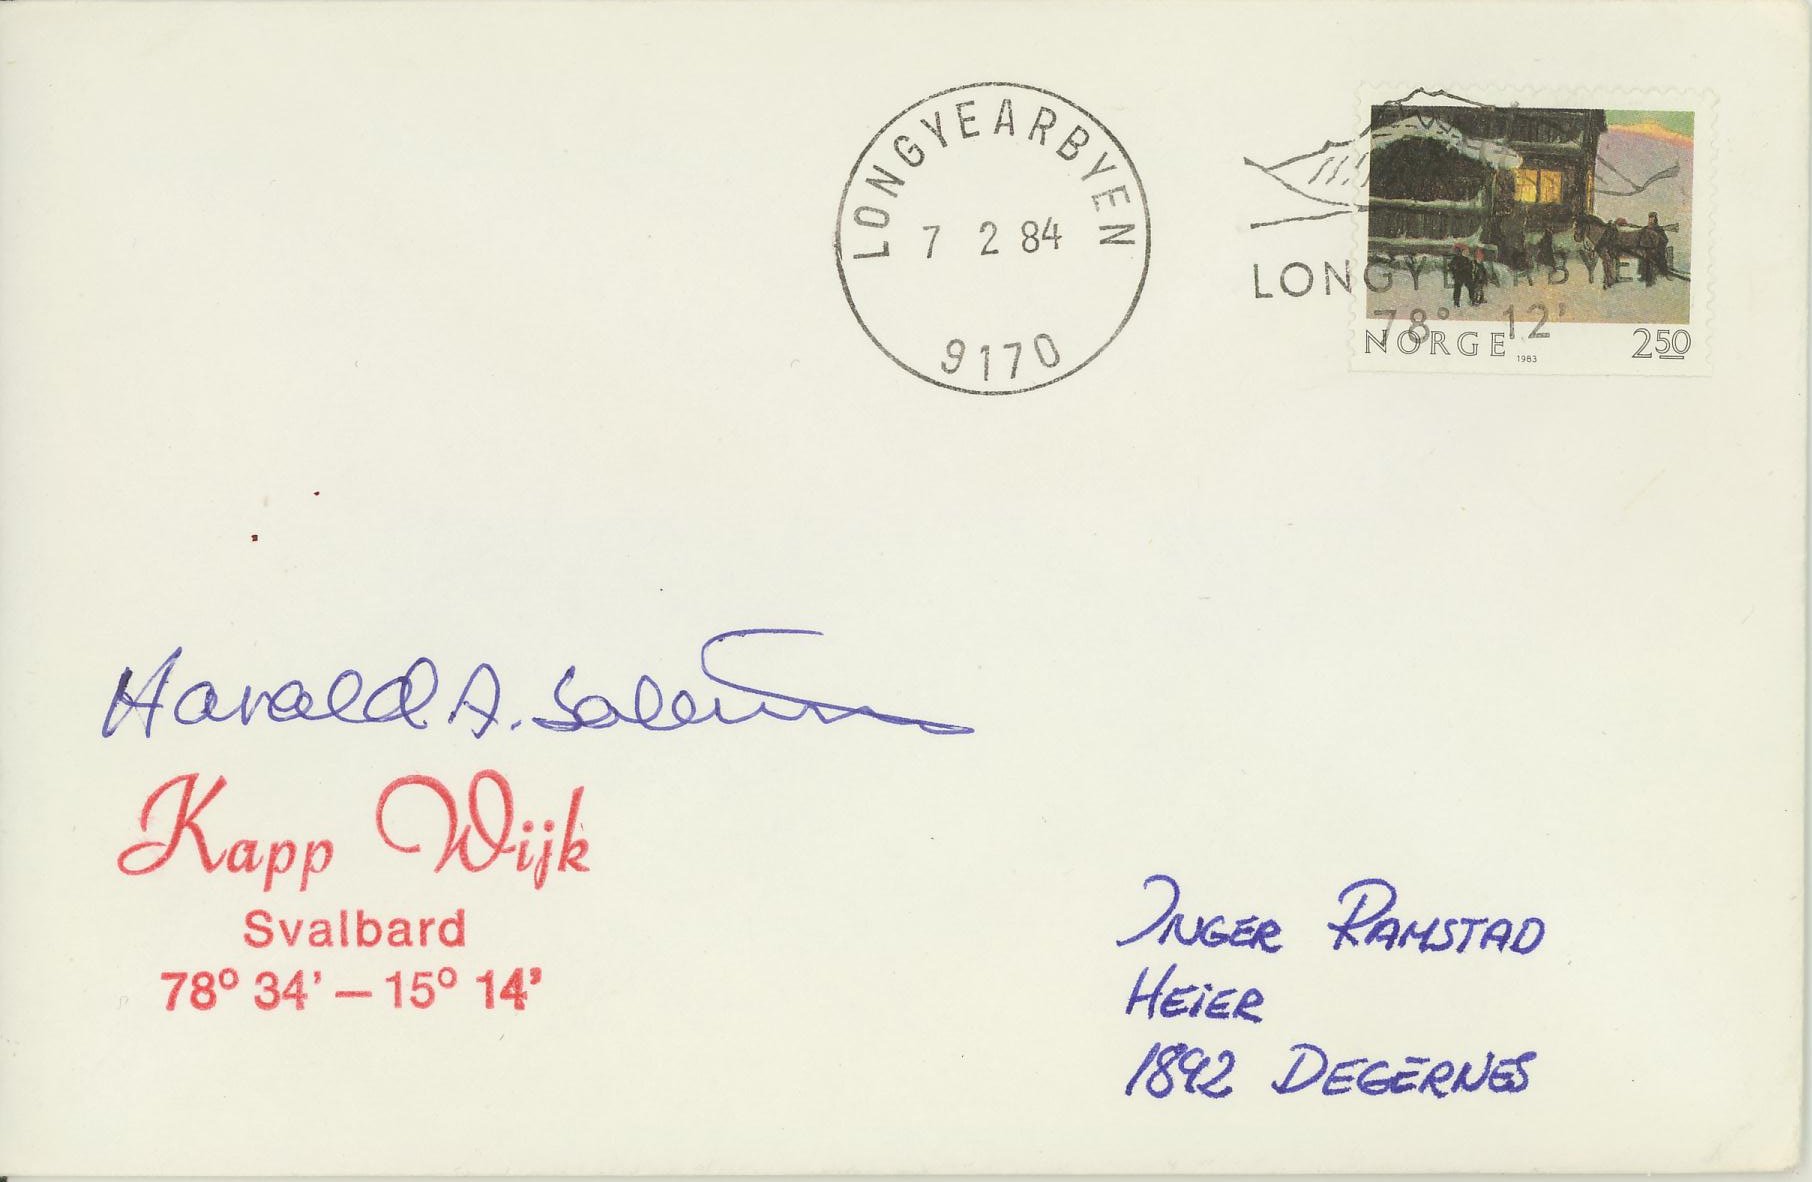 LONGYEARBYEN
7 2 84
9170
LONGYEARBYEN
78° 12'
NORGE 1983 250
Harald A.
Kapp Wijk
Svalbard
78° 34' – 15° 14'
INGER RAMSTAD
HEiER
1892 DEGERNES